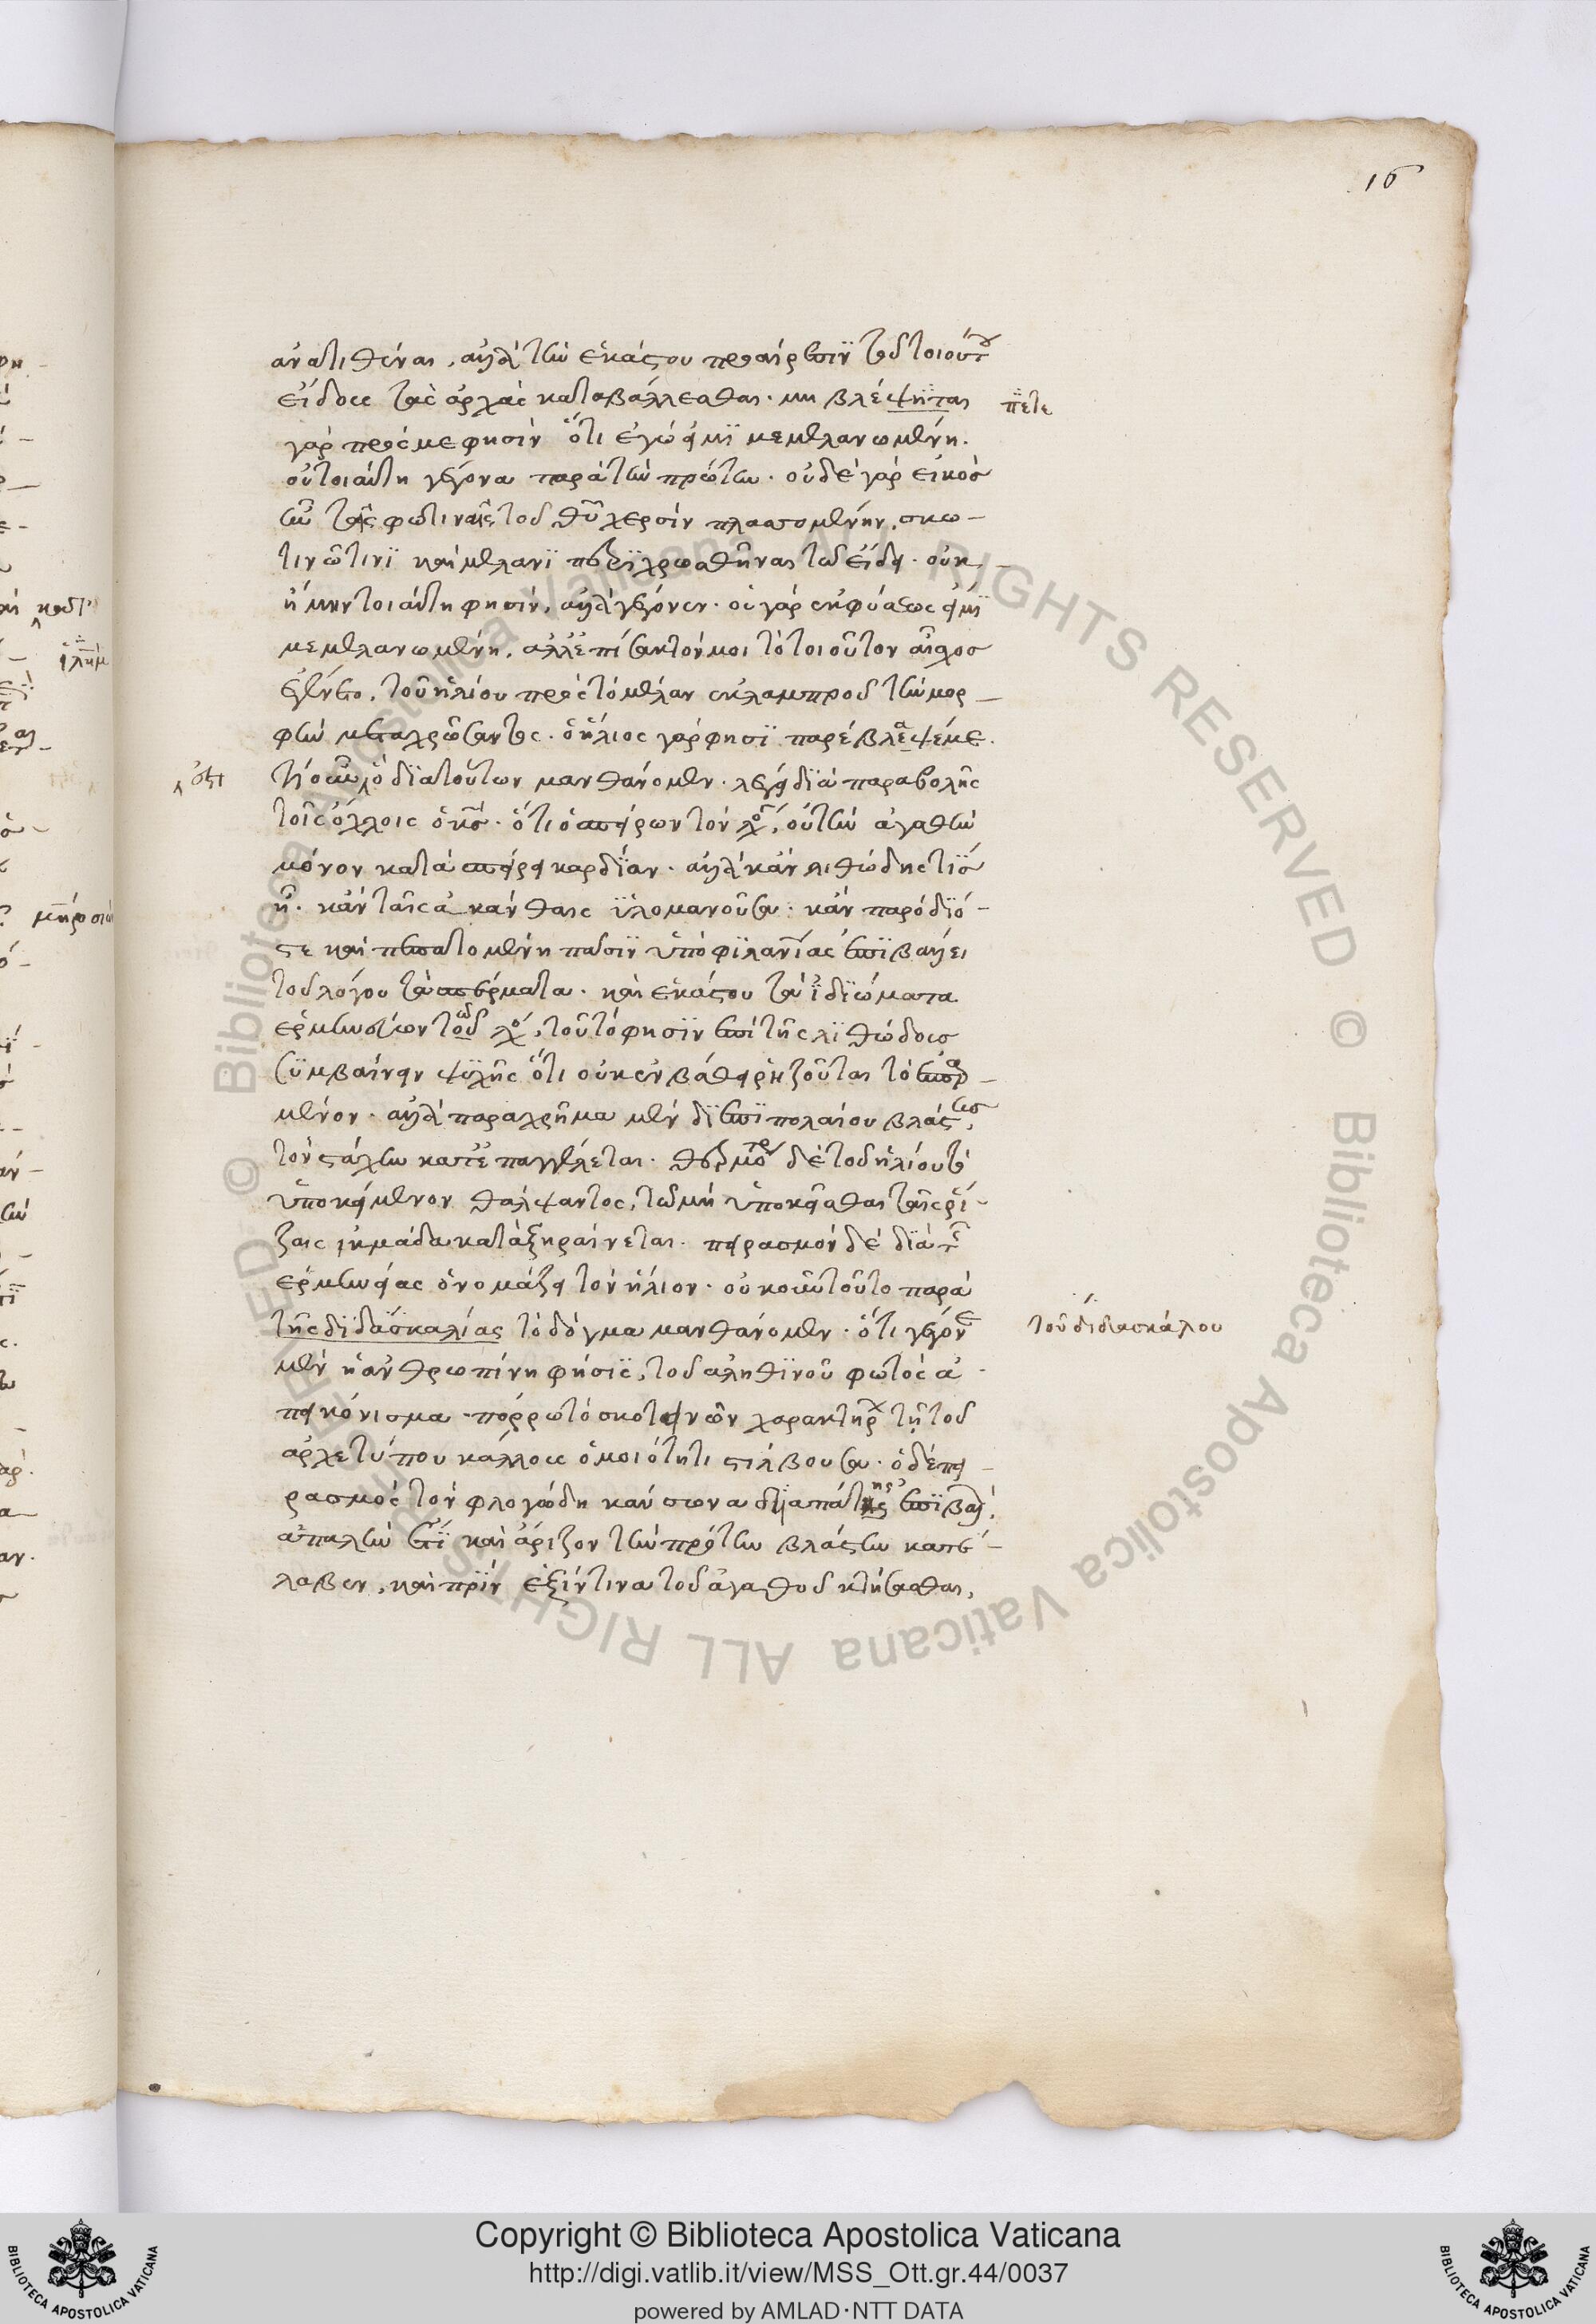 16
ἀνατιθέναι, ἀλλὰ τὴν ἑκάστου προαίρεσιν τοῦ τοιούτου
εἴδους τὰς ἀρχὰς καταβάλλεσθαι. μὴ βλέψητας
πετε
γὰρ πρός με φησὶν ὅτι ἐγώ εἰμι μεμελανωμένη.
οὐ τοιαύτη γέγονα παρὰ τὴν πρώτην. οὐδὲ γὰρ εἰκὸς
ἦν ταῖς φωτιναῖς τοῦ θυ χερσὶν πλασσομένην, σκω-
τινῶ τινι καὶ μέλανι περιχρωσθῆναι τῶ εἴδει. οὐκ
ἤμην τοιαύτη φησίν, ἀλλὰ γέγονεν. οὐ γὰρ ἐκ φύσεως εἰμι
μεμελανωμένη, ἀλλ' ἐπίσακτόν μοι τὸ τοιοῦτον αἶσχος
ἐγένετο, τοῦ ἡλίου πρὸς τὸ μέλαν ἐκ λαμπροῦ τὴν μορ-
φὴν μεταχρώσαντος. ὁ ἥλιος γάρ φησι παρέβλεψέ με.
ἐστι
τί οὖν ὃ διὰ τούτων μανθάνομεν. λέγει διὰ παραβολῆς
τοῖς ὄχλοις ὁ κς. ὅτι ὁ σπείρων τὸν λό, οὐ τὴν ἀγαθὴν
μόνον κατασπείρει καρδίαν. ἀλλὰ κἂν λιθώδης τις
ἦ. κἂν ταῖς ἀκάνθαις ὑλομανοῦσα. κἂν παρόδιός
τε καὶ πατομένη πᾶσιν ὑπὸ φιλανίας ἐπιβάλλει
τοῦ λόγου τὰ σπέρματα. καὶ ἑκάστου τὰ ἰδιώματα
ἑρμηνεύων τοῦ λό, τοῦτό φησιν ἐπὶ τῆς λιθώδους
συμβαίνειν ψυχῆς ὅτι οὐκ ἐν βάθει ῥιζοῦται τὸ ἐσπαρ-
μένον. ἀλλὰ παραχρῆμα μὲν δι' ἐπιπολαίου βλάστης,
τὸν στάχυν κατεπαγγέλεται. θερμότερον δὲ τοῦ ἡλίου τὸ
ὑποκείμενον θάλψαντος, τῶ μὴ ὑποκεῖσθαι ταῖς ῥί-
ζαις ἰκμάδα καταξηραίνεται. πειρασμὸν δὲ διὰ τῆς
ἑρμηνείας ὀνομάζει τὸν ἥλιον. οὐκοῦν τοῦτο παρὰ
τῆς διδασκαλίας τὸ δόγμα μανθάνομεν. ὅτι γέγονε
τοῦ διδασκάλου
μὲν ἡ ἀνθρωπίνη φύσις, τοῦ ἀληθινοῦ φωτὸς ἀ-
πεικόνισμα πόρρω τὸ σκοτεινῶν χαρακτήρων τῆ τοῦ
ἀρχετύπου κάλλους ὁμοιότητι στίλβουσα. ὁ δὲ πει-
ρασμὸς τὸν φλογώδη καύσωνα δι' ἀπάτης ἐπιβαλὼν,
ἁπαλὴν ἔτι καὶ ἄριζον τὴν πρώτην βλάστην κατέ-
λαβεν, καὶ πρὶν ἕξιν τινα τοῦ ἀγαθοῦ κτήσασθαι,
Copyright © Biblioteca Apostolica Vaticana
http://digi.vatlib.it/view/MSS_Ott.gr.44/0037
powered by AMLAD·NTT DATA